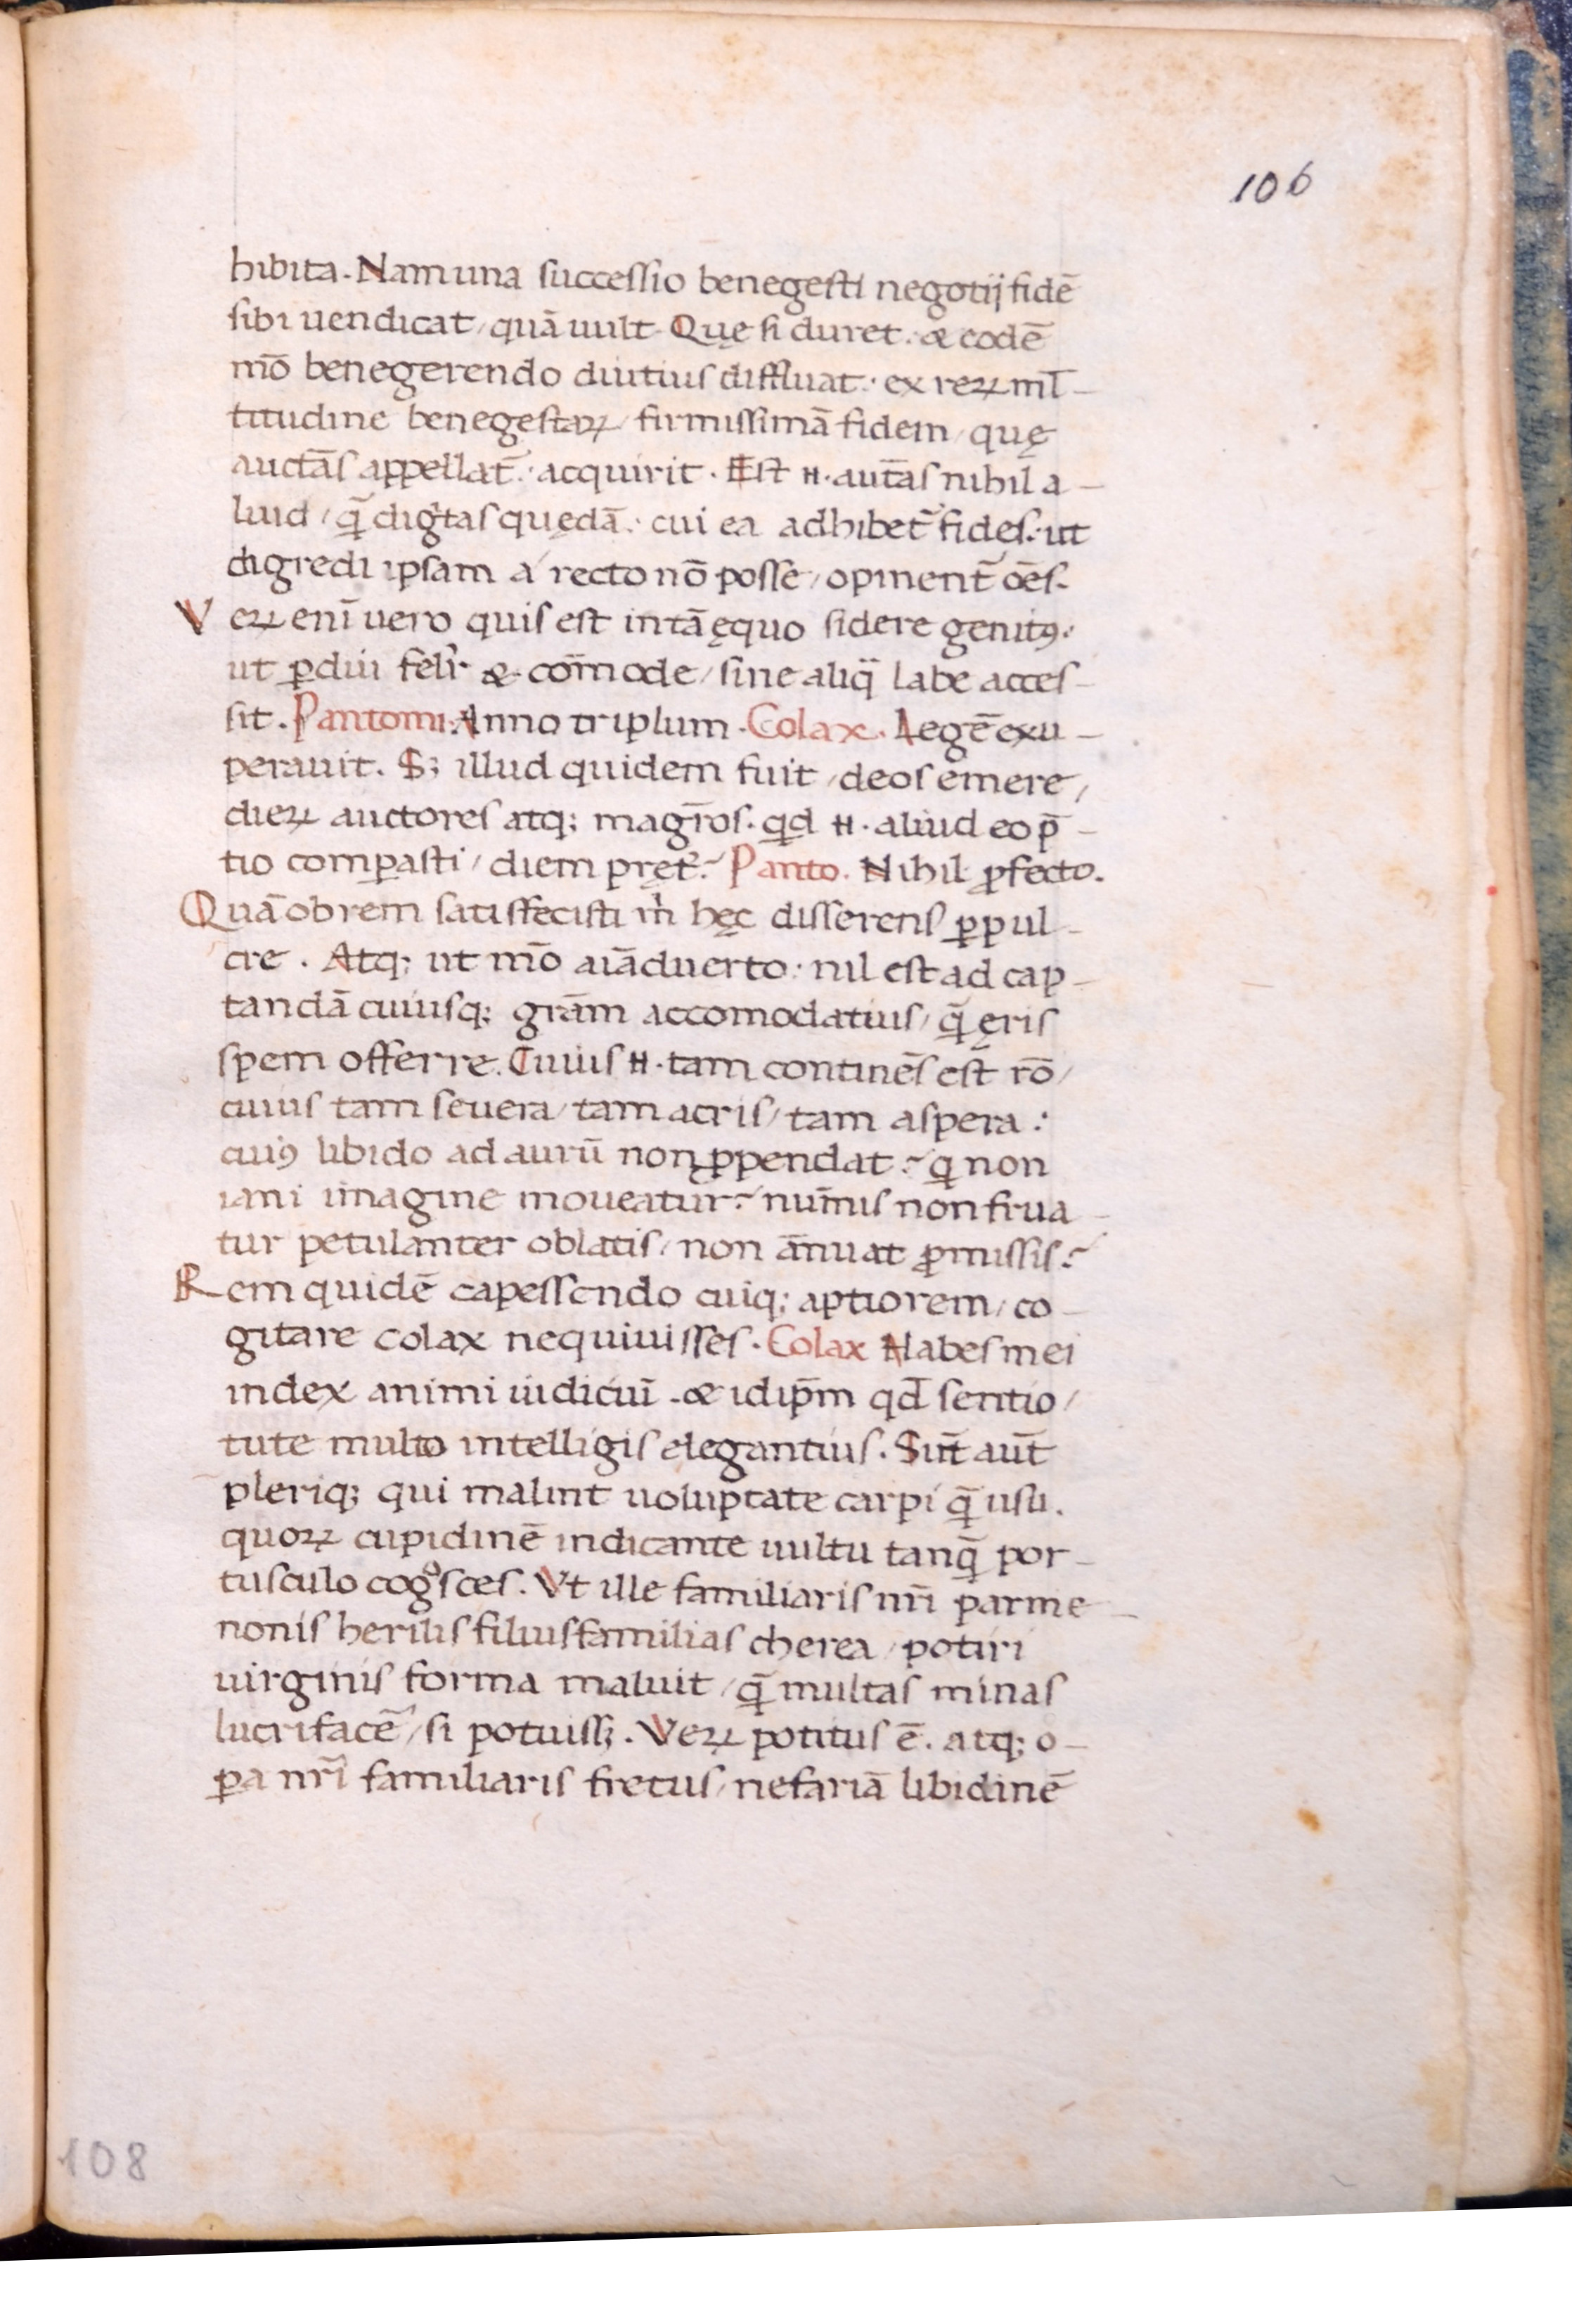 106
hibita. Nam una successio benegesti negotij fidē
sibi uendicat / quā uult. Quę si duret: & eodē
mō benegerendo diutius diffluat: ex reꝝ ml̄-
titudine benegestaꝝ / firmissimā fidem / quę
auctās appellat᷑: acquirit. Est H. autās nihil a-
liud / q̄ꝫ digtas quędā: cui ea adhibet᷑ fides: ut
digredi ipsam á recto nō posse / opinent᷑ oēs.
Veꝝ enī uero quis est in tā ęquo sidere genitꝰ:
ut ꝑdiu felir̄ & com̄ode / sine aliq̈ labe acces-
sit. Pantomi. Anno triplum. Colax. Aegē exu-
perauit. Sꝫ illud quidem fuit / deos emere /
dieꝝ auctores atqꝫ magrōs. qd H. aliud eo p̄-
tio comꝑasti / diem pręt᷑? Panto. Nihil ꝓfecto.
Quāobrem satisfecisti m̄ hęc disserens ꝑpul-
cre. Atqꝫ ut mō aiāduerto: nil est ad cap-
tandā cuiusqꝫ grām accomodatius / q̄ꝫ ęris
spem offerre. Cuius H. tam continēs est rō /
cuius tam seuera / tam acris / tam aspera:
cuiꝰ libido ad aurū non ꝓpendat? q̄ non
iani imagine moueatur? num̄is non frua-
tur petulanter oblatis / non ānuat ꝓmissis?
Rem quidē capessendo cuiqꝫ aptiorem / co-
gitare colax nequiuisses. Colax Habes mei
index animi iudiciū. & idip̄m qd̄ sentio /
tute multo intelligis elegantius. Sūt aūt
pleriqꝫ qui malint uoluptate carpi q̄ꝫ usu.
quoꝝ cupidinē indicante uultu tanq̄ꝫ por-
tusculo cogͦsces. Vt ille familiaris nr̄i parme-
nonis herilis filiusfamilias cherea / potiri
uirginis forma maluit / q̄ꝫ multas minas
lucrifacē / si potuissꝫ. Veꝝ potitus ē. atqꝫ o-
ꝑa nr̄i familiaris fretus / nefariā libidinē
108